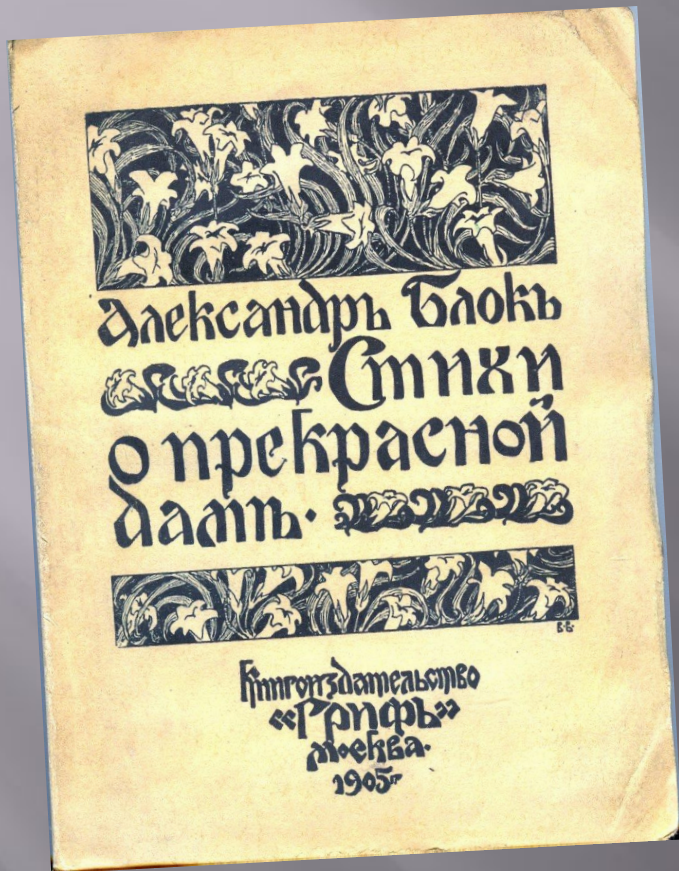 Александръ Блокъ
Стихи
о прекрасной
дамѣ.
В.В.
Книгоиздательство
«Грифъ»
Москва.
1905 г